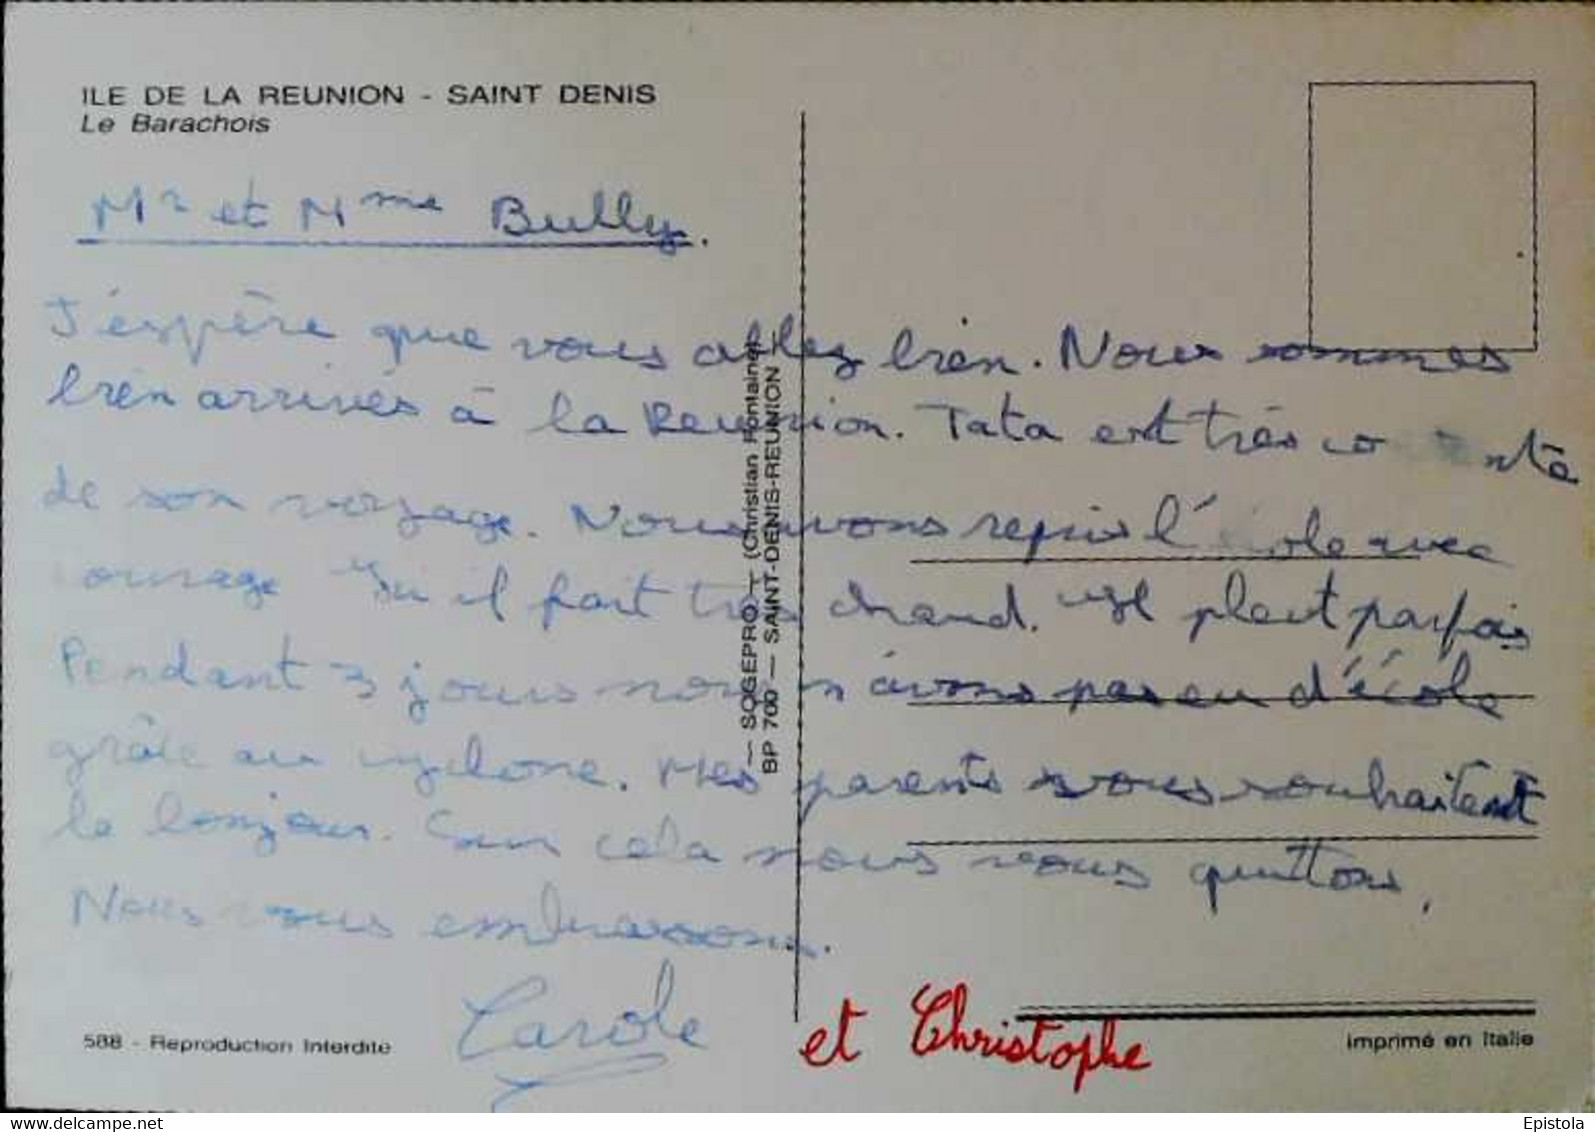 ILE DE LA REUNION - SAINT DENIS
Le Barachois
Mr et Mme Bully.
J'espère que vous allez bien. Nous sommes
bien arrivés à la Reunion. Tata est très contente
de son voyage. Nous avons repris l'école avec
courage. Ici il fait très chaud. Il pleut parfois
Pendant 3 jours nous n'avons pas eu d'école
grâce au cyclone. Mes parents vous souhaitent
le bonjour. Sur cela nous vous quittons,
Nous vous embrassons.
Carole et Christophe
— SOGEPRO — (Christian Fontaine)
BP 700 — SAINT-DENIS-REUNION
588 - Reproduction Interdite
Imprimé en Italie
delcampe.net
Epistola